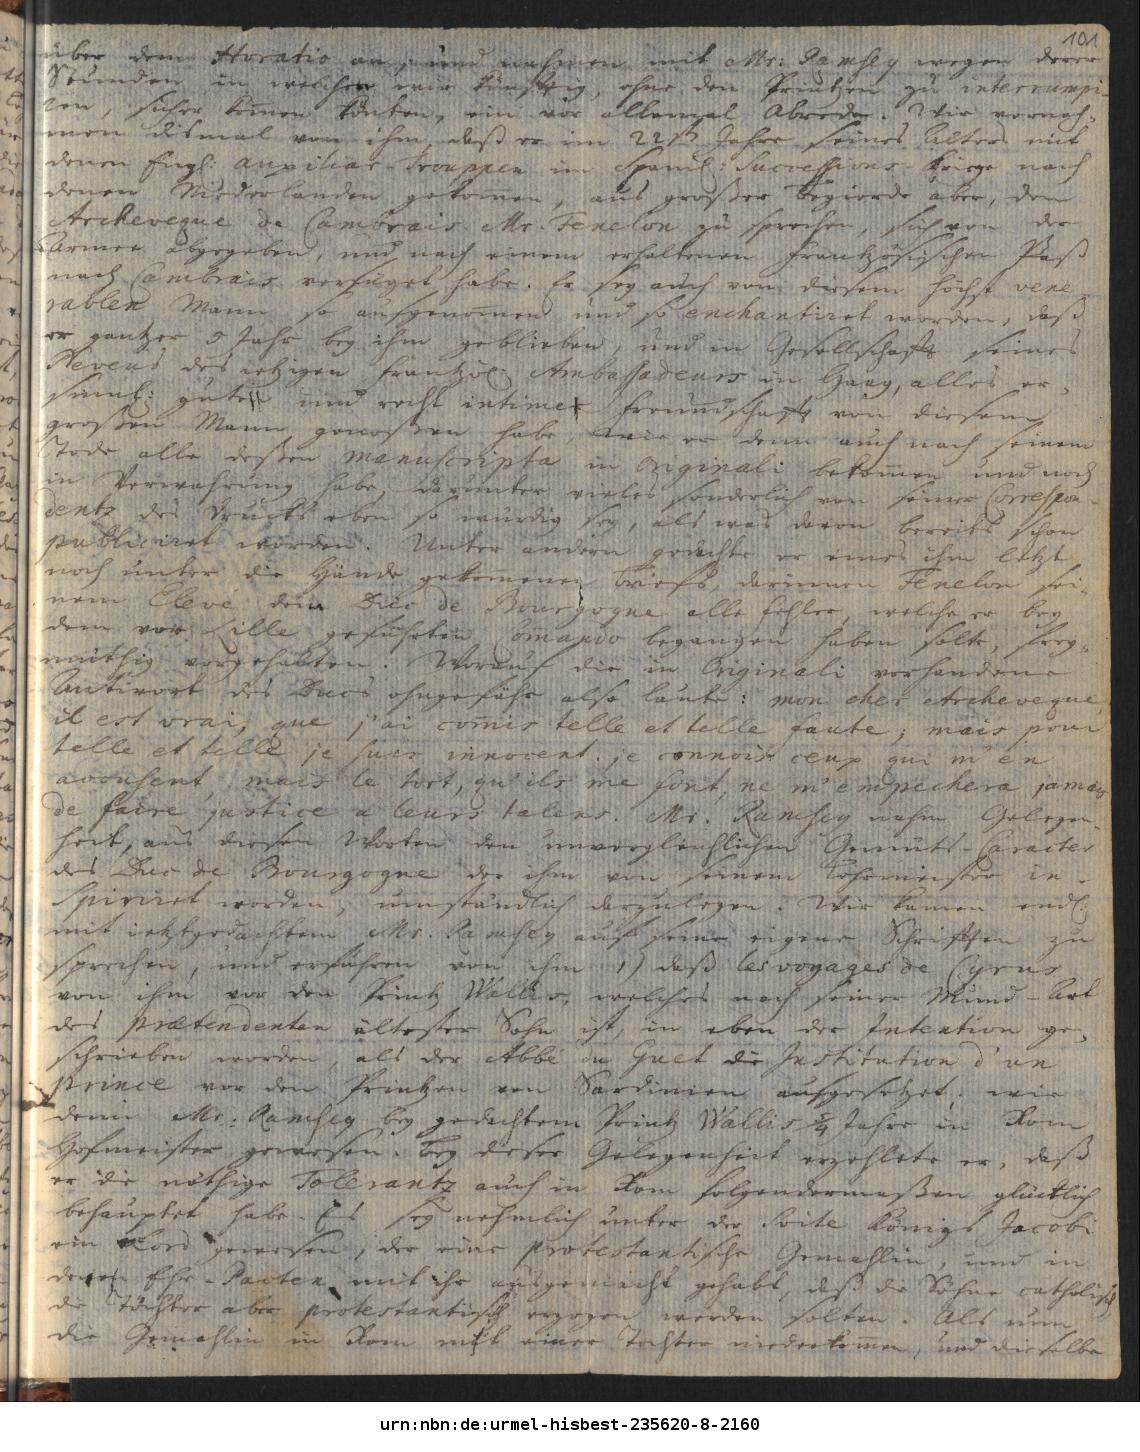 101
über dem Horatio an, und nahmen mit Mr: Ramsey wegen derer
Stunden, in welchen wir künfftig, ohne den Printzen zu interrumpi-
ren, sicher kommen könten, ein vor allemal Abrede. Wir vernah-
men dismal von ihm, daß er im 22sten Jahre seines Alters mit
denen Engl: auxiliar-Trouppen im Span: Successions-Kriege nach
denen Niederlanden gekom̅en, aus großer Begierde aber, den
Archeveque de Cambrais Mr. Fenelon zu sprechen, sich von der
Armee abgegeben, und nach einem erhaltenen Frantzösischen Paß
nach Cambrais verfüget habe. Er sey auch von diesem höchst vene-
rablen Mann so aufgenom̅en und so enchantiret worden, daß
er gantzer 5 Jahr bey ihm geblieben, und in Gesellschafft seines
Neveus des jetzigen Frantzös: Ambassadeurs in Haag, alles er-
sinnl: gute und recht intime Freundschafft von diesem
großen Mann genoßen habe, wie er denn auch nach seinem
Tode alle deßen manuscripta in Originali bekom̅en und noch
in Verwahrung habe, darunter vieles sonderlich von seiner Correspon-
dentz des Drucks eben so würdig sey, als was davon bereits schon
publiciret worden. Unter andern gedachte er eines ihm letzt
noch unter die Hände gekom̅enen Briefs, darinnen Fenelon sei-
nem Elevé dem Duc de Bourgogne alle Fehler, welche er bey
dem vor Lille geführten Com̅ando begangen haben solte, frey-
müthig vorgehalten. Worauf die in Originali vorhandene
Antwort des Ducs ohngefähr also laute: mon cher Archeveque,
il est vrai, que j'ai com̅is telle et telle faute; mais pour
telle et telle je suis innocent. je connois ceux qui m'en
accusent, mais le tort, qu'ils me font, ne m'empechera jamais
de faire justice a leurs talens. Mr. Ramsey nahm Gelegen-
heit, aus diesen Worten den unvergleichlichen Gemüts-Caracter
des Duc de Bourgogne der ihm von seinem Lehrmeister in-
spiriret worden, umständlich darzulegen. Wir kamen endl:
mit jetztgedachtem Mr. Ramsey auf seine eigene Schrifften zu
sprechen, und erfuhren von ihm 1) daß les voyages de Cyrus
von ihm vor den Printz Wallis, welches nach seiner Mund-Art
des Prætendenten ältester Sohn ist, in eben der Intention ge-
schrieben worden, als der Abbé du Guet die Institution d'un
prince vor den Printzen von Sardinien aufgesetzet; wie
denn Mr: Ramsey bey gedachtem Printz Wallis Jahr in Rom
Hofmeister gewesen. Bey dieser Gelegenheit erzehlete er, daß
er die nöthige Tolerantz auch in Rom folgendermaßen glücklich
behauptet habe. Es sey nehmlich unter der Suite Königs Jacobi
ein Lord gewesen, der eine protestantische Gemahlin, und in
denen Ehe-Pacten mit ihr ausgemacht gehabt, daß die Söhne catholisch
die Töchter aber protestantisch erzogen werden solten. Als nun
die Gemahlin in Rom mit einer Tochter niederkom̅en, und dieselbe
urn:nbn:de:urmel-hisbest-235620-8-2160